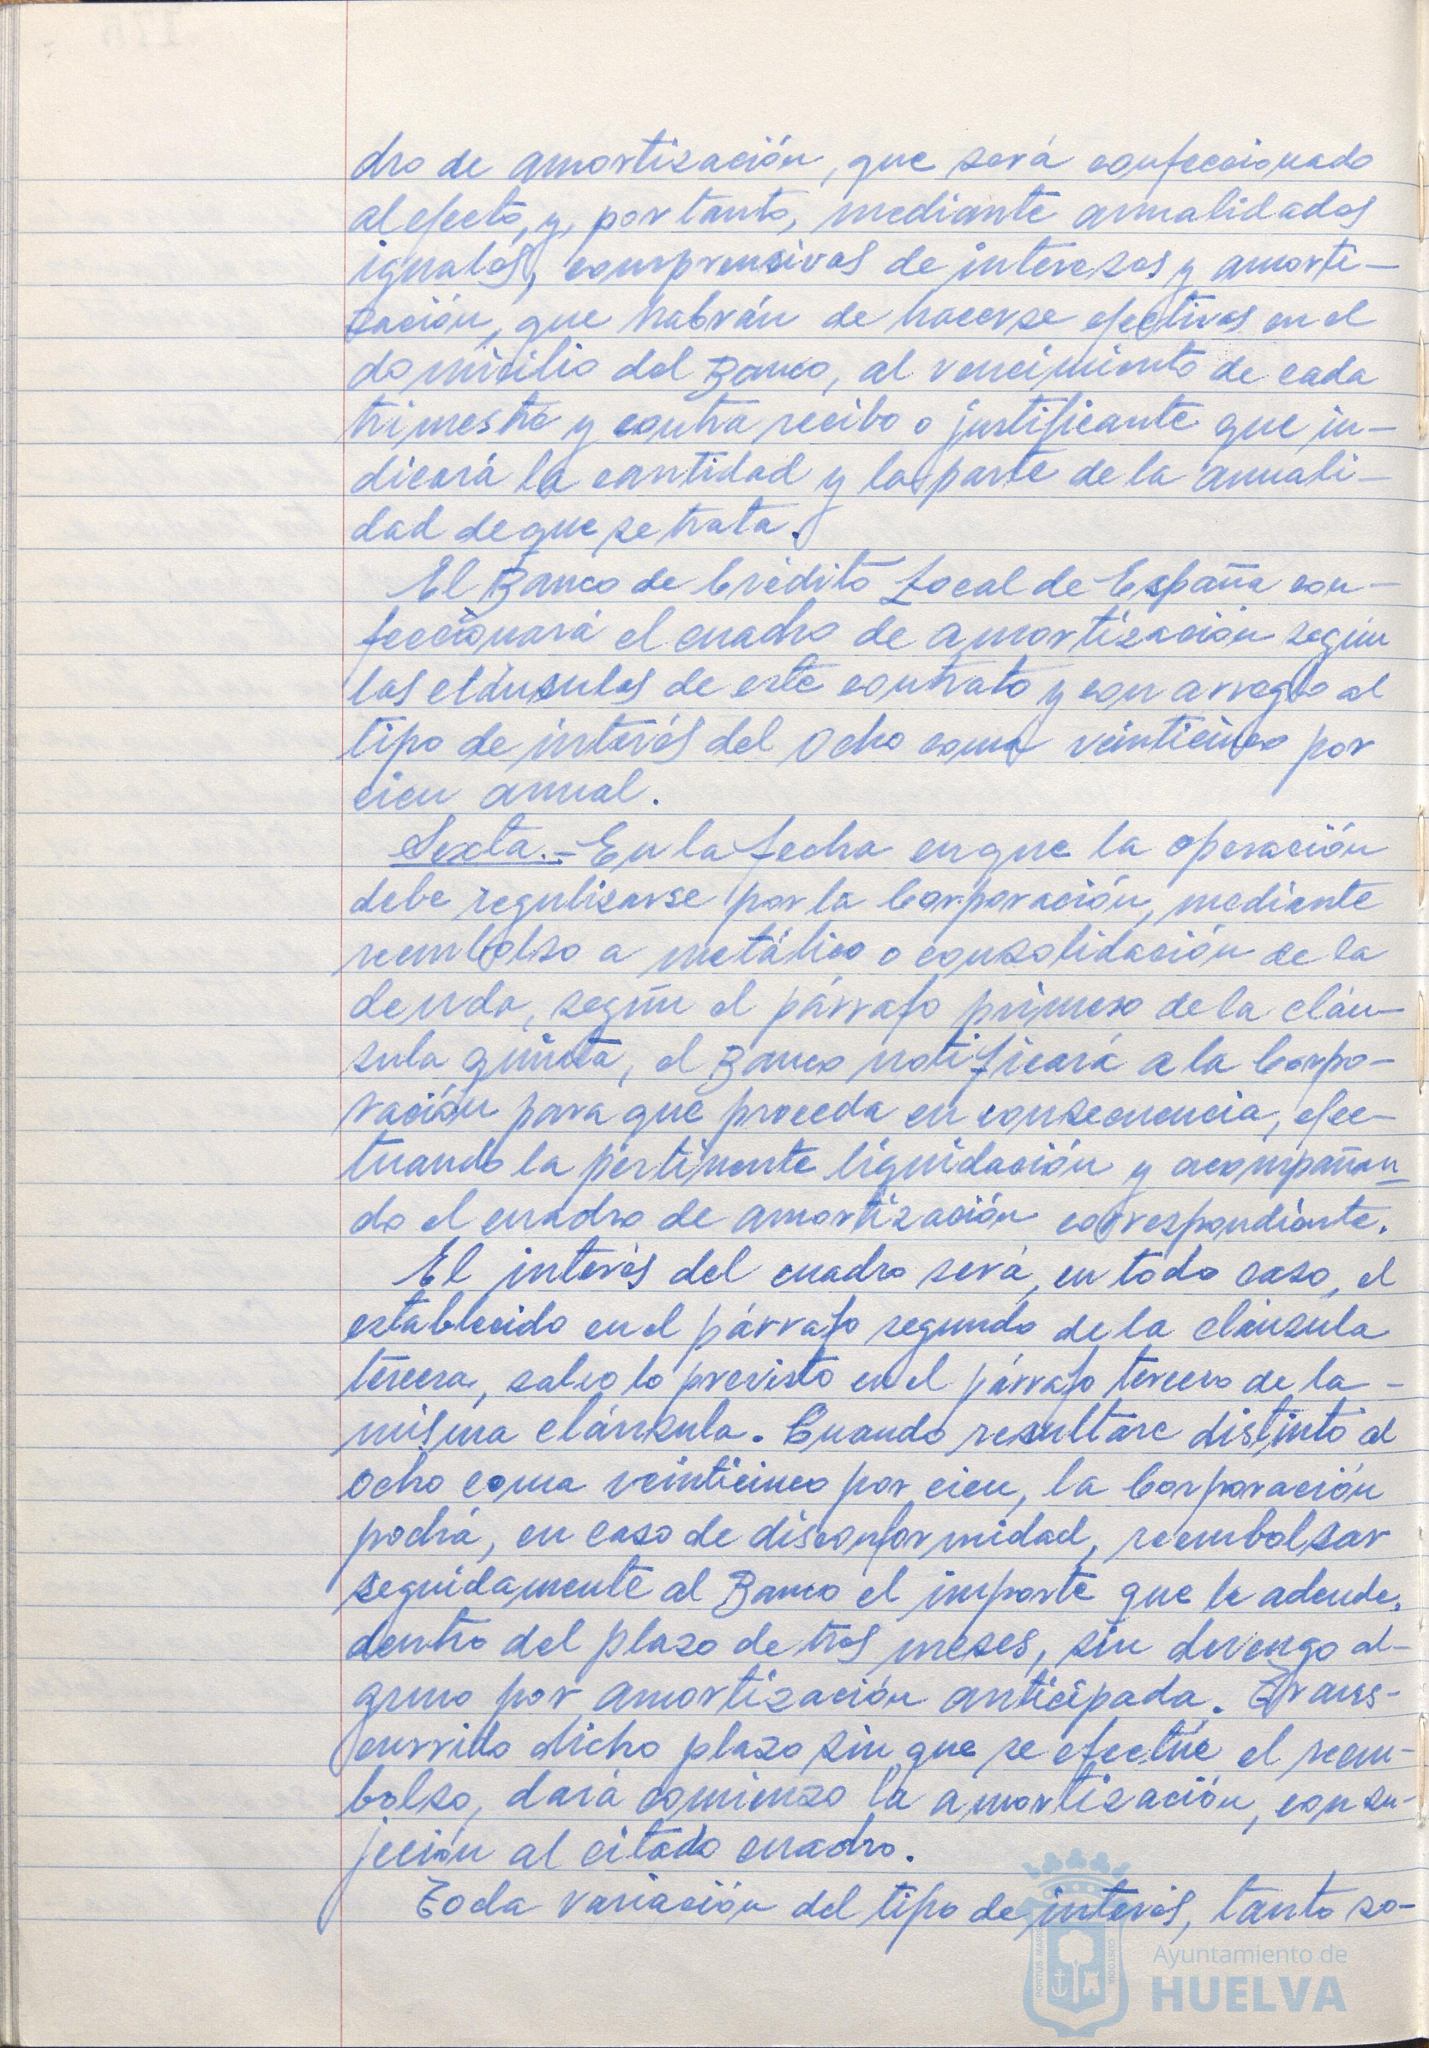 dro de amortización, que será confeccionado
al efecto, y, por tanto, mediante anualidades
iguales, comprensivas de intereses y amorti-
zación, que habrán de hacerse efectivas en el
domicilio del Banco, al vencimiento de cada
trimestre y contra recibo o justificante que in-
dicará la cantidad y la parte de la anuali-
dad de que se trata.
El Banco de Crédito Local de España con-
feccionará el cuadro de amortización según
las cláusulas de este contrato y con arreglo al
tipo de interés del ocho coma veinticinco por
cien anual.
Sexta.- En la fecha en que la operación
debe regulizarse por la Corporación, mediante
reembolso a metálico o consolidación de la
deuda, según el párrafo primero de la cláu-
sula quinta, el Banco notificará a la Corpo-
ración para que proceda en consecuencia, efec-
tuando la pertinente liquidación y acompañan-
do el cuadro de amortización correspondiente.
El interés del cuadro será, en todo caso, el
establecido en el párrafo segundo de la cláusula
tercera, salvo lo previsto en el párrafo tercero de la -
misma cláusula. Cuando resultare distinto al
ocho coma veinticinco por cien, la Corporación
podrá, en caso de disconformidad, reembolsar
seguidamente al Banco el importe que le adeude,
dentro del plazo de tres meses, sin devengo al-
guno por amortización anticipada. Trans-
currido dicho plazo sin que se efectúe el reem-
bolso, dará comienzo la amortización, con su-
jeción al citado cuadro.
Toda variación del tipo de interés, tanto so-
PORTUS MARIS
CUSTODIA
Ayuntamiento de
HUELVA